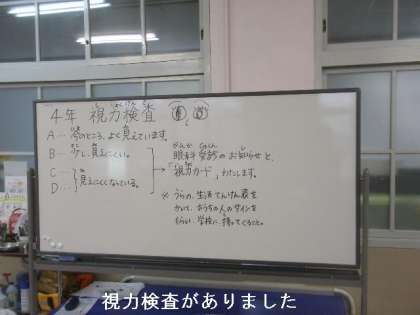 4年 視力検査
A… 今のところ、よく見えています。
B… 少し、見えにくい。
C…
D… 見えにくくなっている。
がんか じゅしん
眼科受診のお知らせと、
「視力カード」わたします。
※ うらの、生活てんけん表を
かいて、おうちの人のサインを
もらい、学校に持ってくること。
視力検査がありました